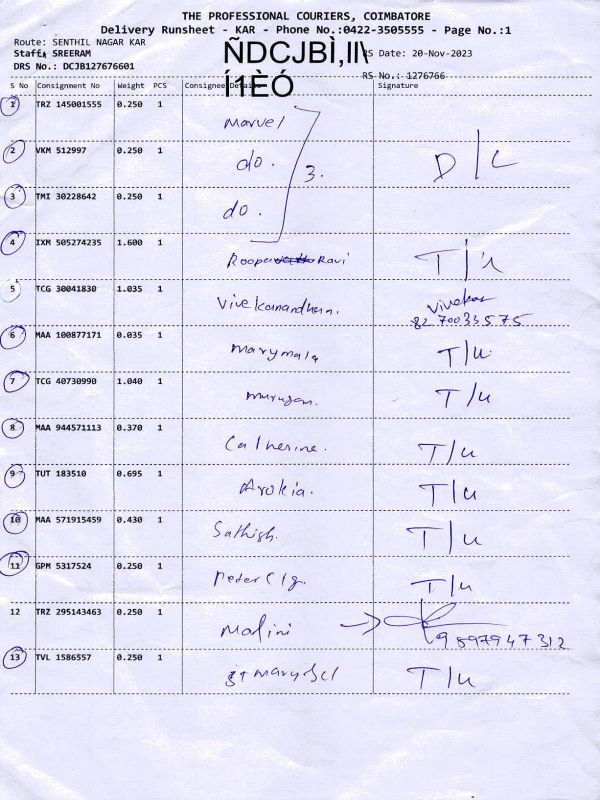 THE PROFESSIONAL COURIERS, COIMBATORE
Delivery Runsheet - KAR - Phone No.:0422-3505555 - Page No.:1
Route: SENTHIL NAGAR KAR
Staff: SREERAM ÑDCJBÌ,II\ RS Date: 20-Nov-2023
DRS No.: DCJB127676601 Í1ÈÓ RS No.: 1276766
S No Consignment No Weight PCS Consignee Details Signature
1 TRZ 145001555 0.250 1 Marvel
2 VKM 512997 0.250 1 do. 3. D/L
3 TMI 30228642 0.250 1 do.
4 IXM 505274235 1.600 1 Roopa Ravi T/u
5 TCG 30041830 1.035 1 Vivekanandhan. Vivek
82 70033575
6 MAA 100877171 0.035 1 Marymala T/u
7 TCG 40730990 1.040 1 Murugan. T/u
8 MAA 944571113 0.370 1 Catherine. T/u
9 TUT 183510 0.695 1 Arokia. T/u
10 MAA 571915459 0.430 1 Sathish. T/u
11 GPM 5317524 0.250 1 Peter Clg. T/u
12 TRZ 295143463 0.250 1 Malini → 9897947312
13 TVL 1586557 0.250 1 St Mary T/u